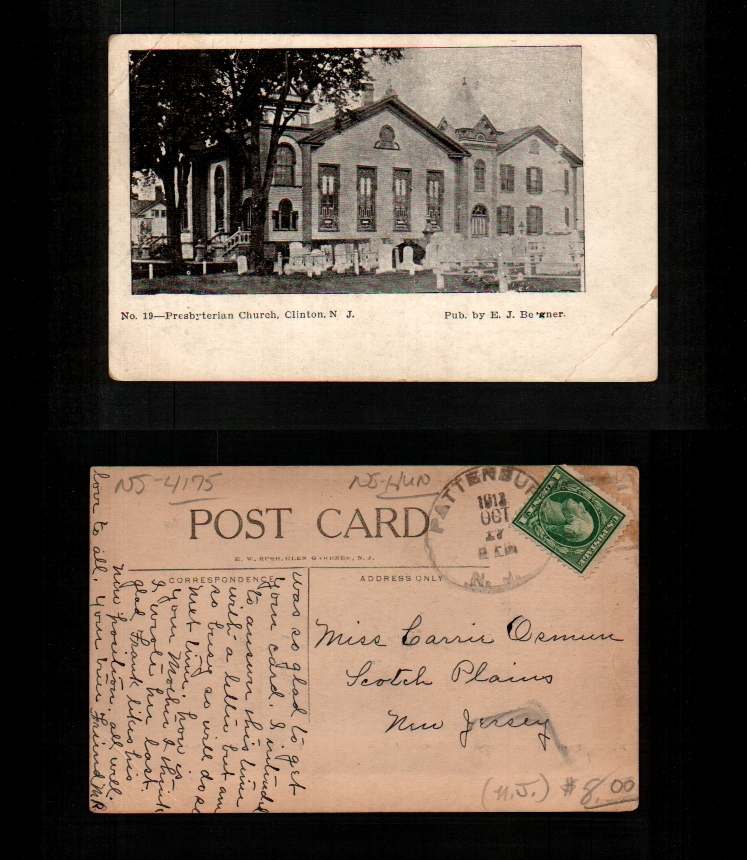 No. 19—Presbyterian Church, Clinton, N J.
Pub. by E. J. Be gner.
NJ-4175
NJ-HUN
POST CARD
E. W. RUSH, GLEN GARDNER, N. J.
PATTENBUR
1913
OCT
27
N. J.
CORRESPONDENCE
ADDRESS ONLY
was so glad to get
your card. I intended
to answer this time
with a letter but am
so busy so will do so
next time. how is
your Mother I think
I wrote her last.
glad Frank likes his
new position. all well.
love to all. your true Friend MR
Miss Carrie Osmun
Scotch Plains
New Jersey
(N.J.) $8.00